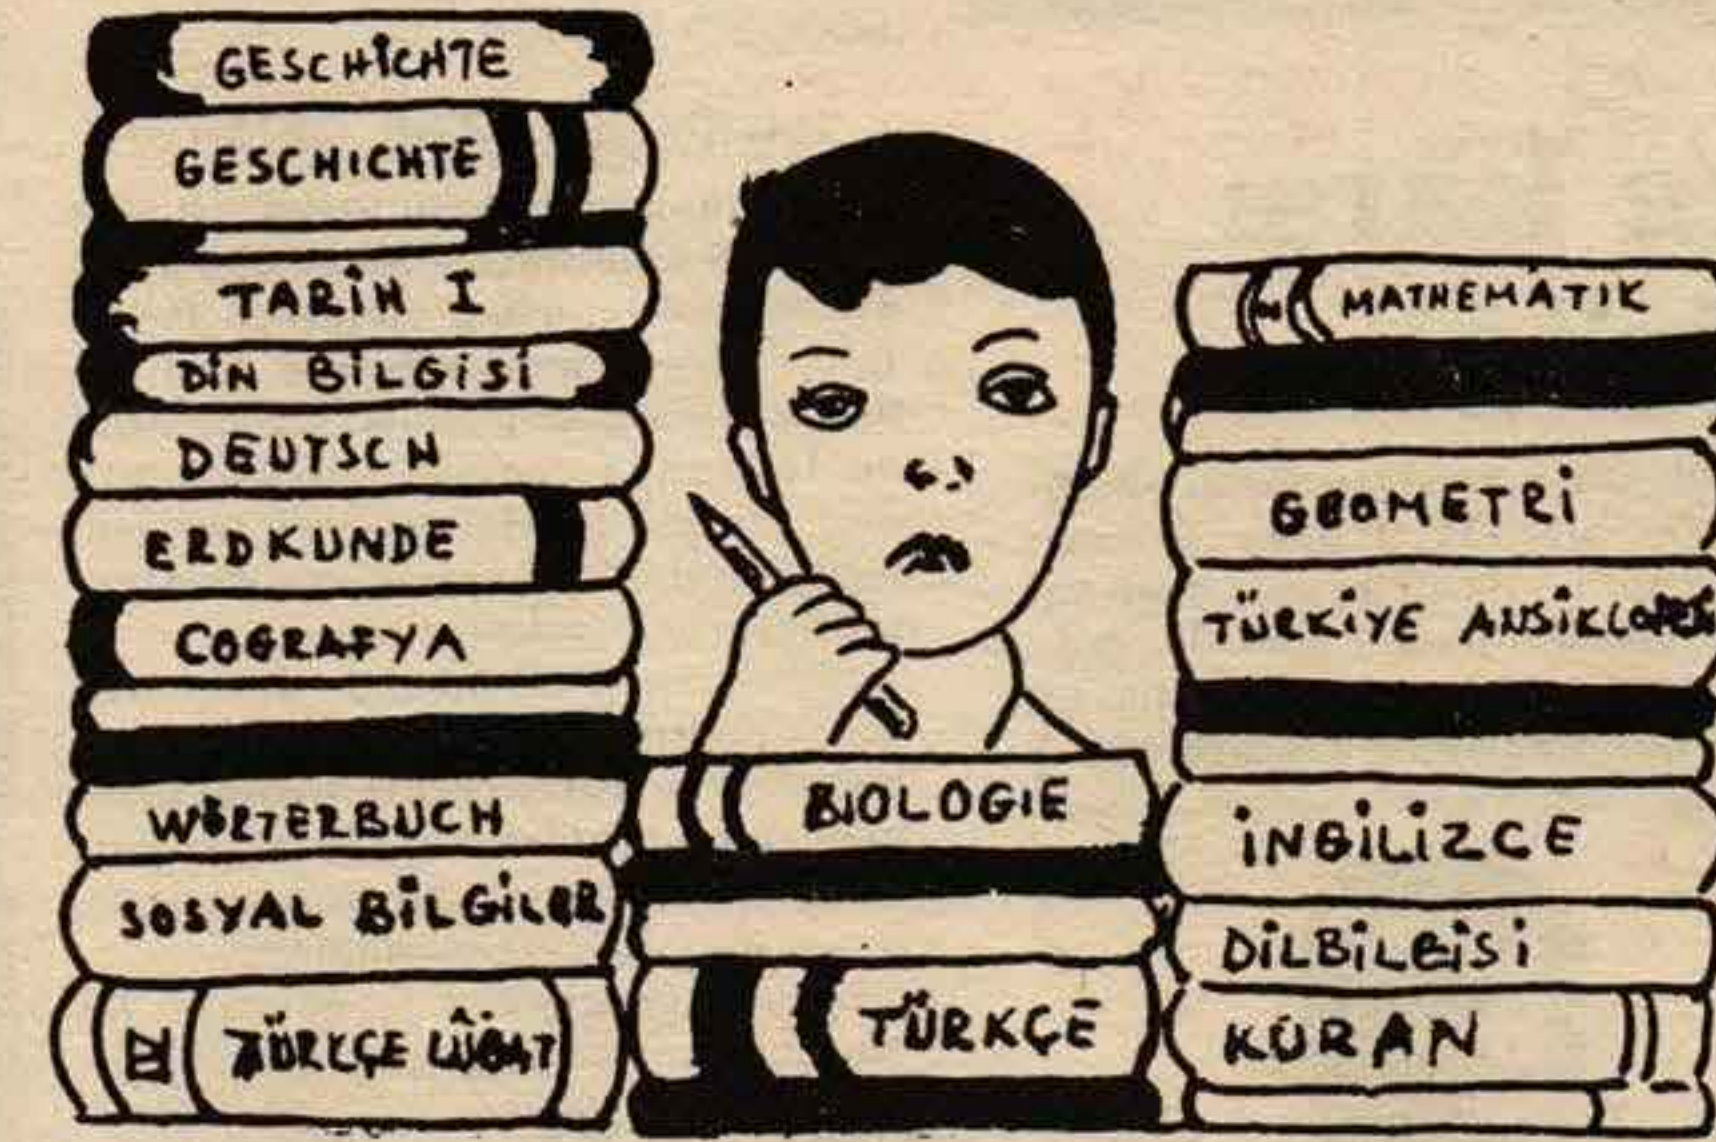 GESCHİCHTE
GESCHICHTE
TARİH I
DİN BİLGİSİ
DEUTSCH
ERDKUNDE
COGRAFYA
WÖRTERBUCH
SOSYAL BİLGİLER
TÜRKÇE LÛGAT
BIOLOGIE
TÜRKÇE
MATHEMATIK
GEOMETRİ
TÜRKİYE ANSİKLOPEDİ
İNGİLİZCE
DİLBİLGİSİ
KURAN